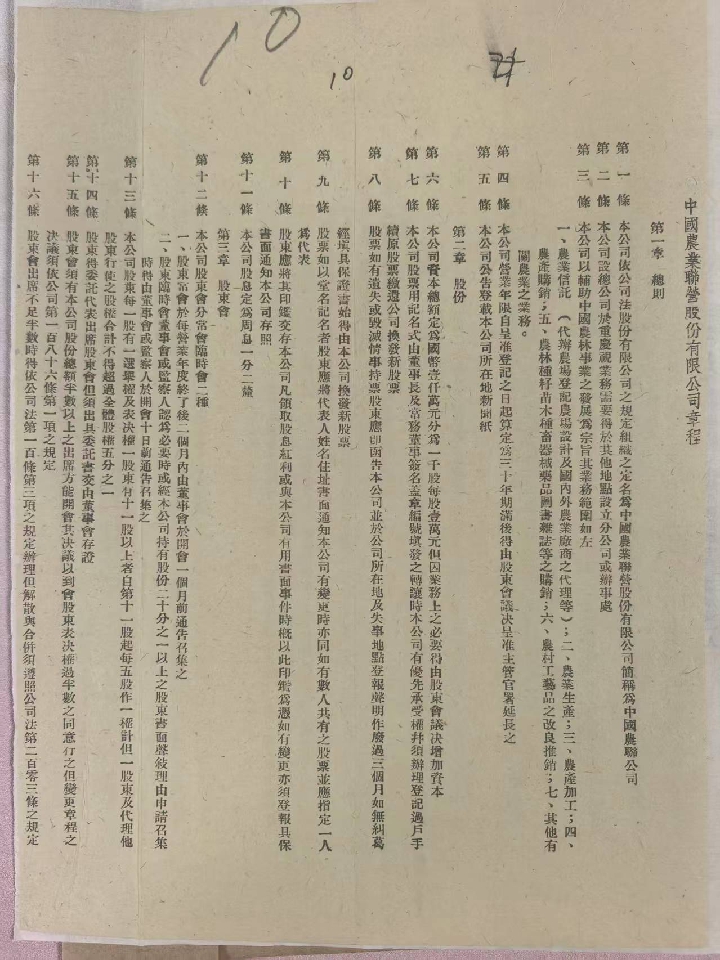 10
10
中國農業聯營股份有限公司章程
第一章 總則
第一條 本公司依公司法股份有限公司之規定組織之定名爲中國農業聯營股份有限公司簡稱爲中國農聯公司
第二條 本公司設總公司於重慶視業務需要得於其他地點設立分公司或辦事處
第三條 本公司以輔助中國農林事業之發展爲宗旨其業務範圍如左
一、農業信託（代辦農場登記農場設計及國內外農業廠商之代理等）；二、農業生產；三、農產加工；四、
農產購銷；五、農林種籽苗木種畜器械藥品圖書雜誌等之購銷；六、農村工藝品之改良推銷；七、其他有
關農業之業務。
第四條 本公司營業年限自呈准登記之日起算定爲三十年期滿後得由股東會議决呈准主管官署延長之
第五條 本公司公告登載本公司所在地新聞紙
第二章 股份
第六條 本公司資本總額定爲國幣壹仟萬元分爲一千股每股壹萬元但因業務上之必要得由股東會議决增加資本
第七條 本公司股票用記名式由董事長及常務董事簽名蓋章編號填發之轉讓時本公司有優先承受權幷須辦理登記過戶手
續原股票繳還公司換發新股票
第八條 股票如有遺失或毀滅情事持票股東應即函告本公司並於公司所在地及失事地點登報聲明作廢過三個月如無糾葛
經填具保證書始得由本公司換發新股票
第九條 股票如以堂名記名者股東應將代表人姓名住址書面通知本公司有變更時亦同如有數人共有之股票並應指定一人
爲代表
第十條 股東應將其印鑑交存本公司凡領取股息紅利或與本公司有用書面事件時概以此印鑑爲憑如有變更亦須登報具保
書面通知本公司存照
第十一條 本公司股息定爲周息一分二釐
第三章 股東會
第十二條 本公司股東會分常會臨時會二種
一、股東常會於每營業年度終了後二個月內由董事會於開會一個月前通告召集之
二、股東臨時會董事會或監察人認爲必要時或經本公司持有股份二十分之一以上之股東書面聲敘理由申請召集
時得由董事會或監察人於開會十日前通告召集之
第十三條 本公司股東每一股有一選舉權及表决權一股東有十一股以上者自第十一股起每五股作一權計但一股東及代理他
股東行使之股權合計不得超過全體股權五分之一
第十四條 股東得委託代表出席股東會但須出具委託書交由董事會存證
第十五條 股東會須有本公司股份總額半數以上之出席方能開會其决議以到會股東表决權過半數之同意行之但變更章程之
决議須依公司第一百八十六條第一項之規定
第十六條 股東會出席不足半數時得依公司法第一百條第三項之規定辦理但解散與合併須遵照公司法第二百零三條之規定